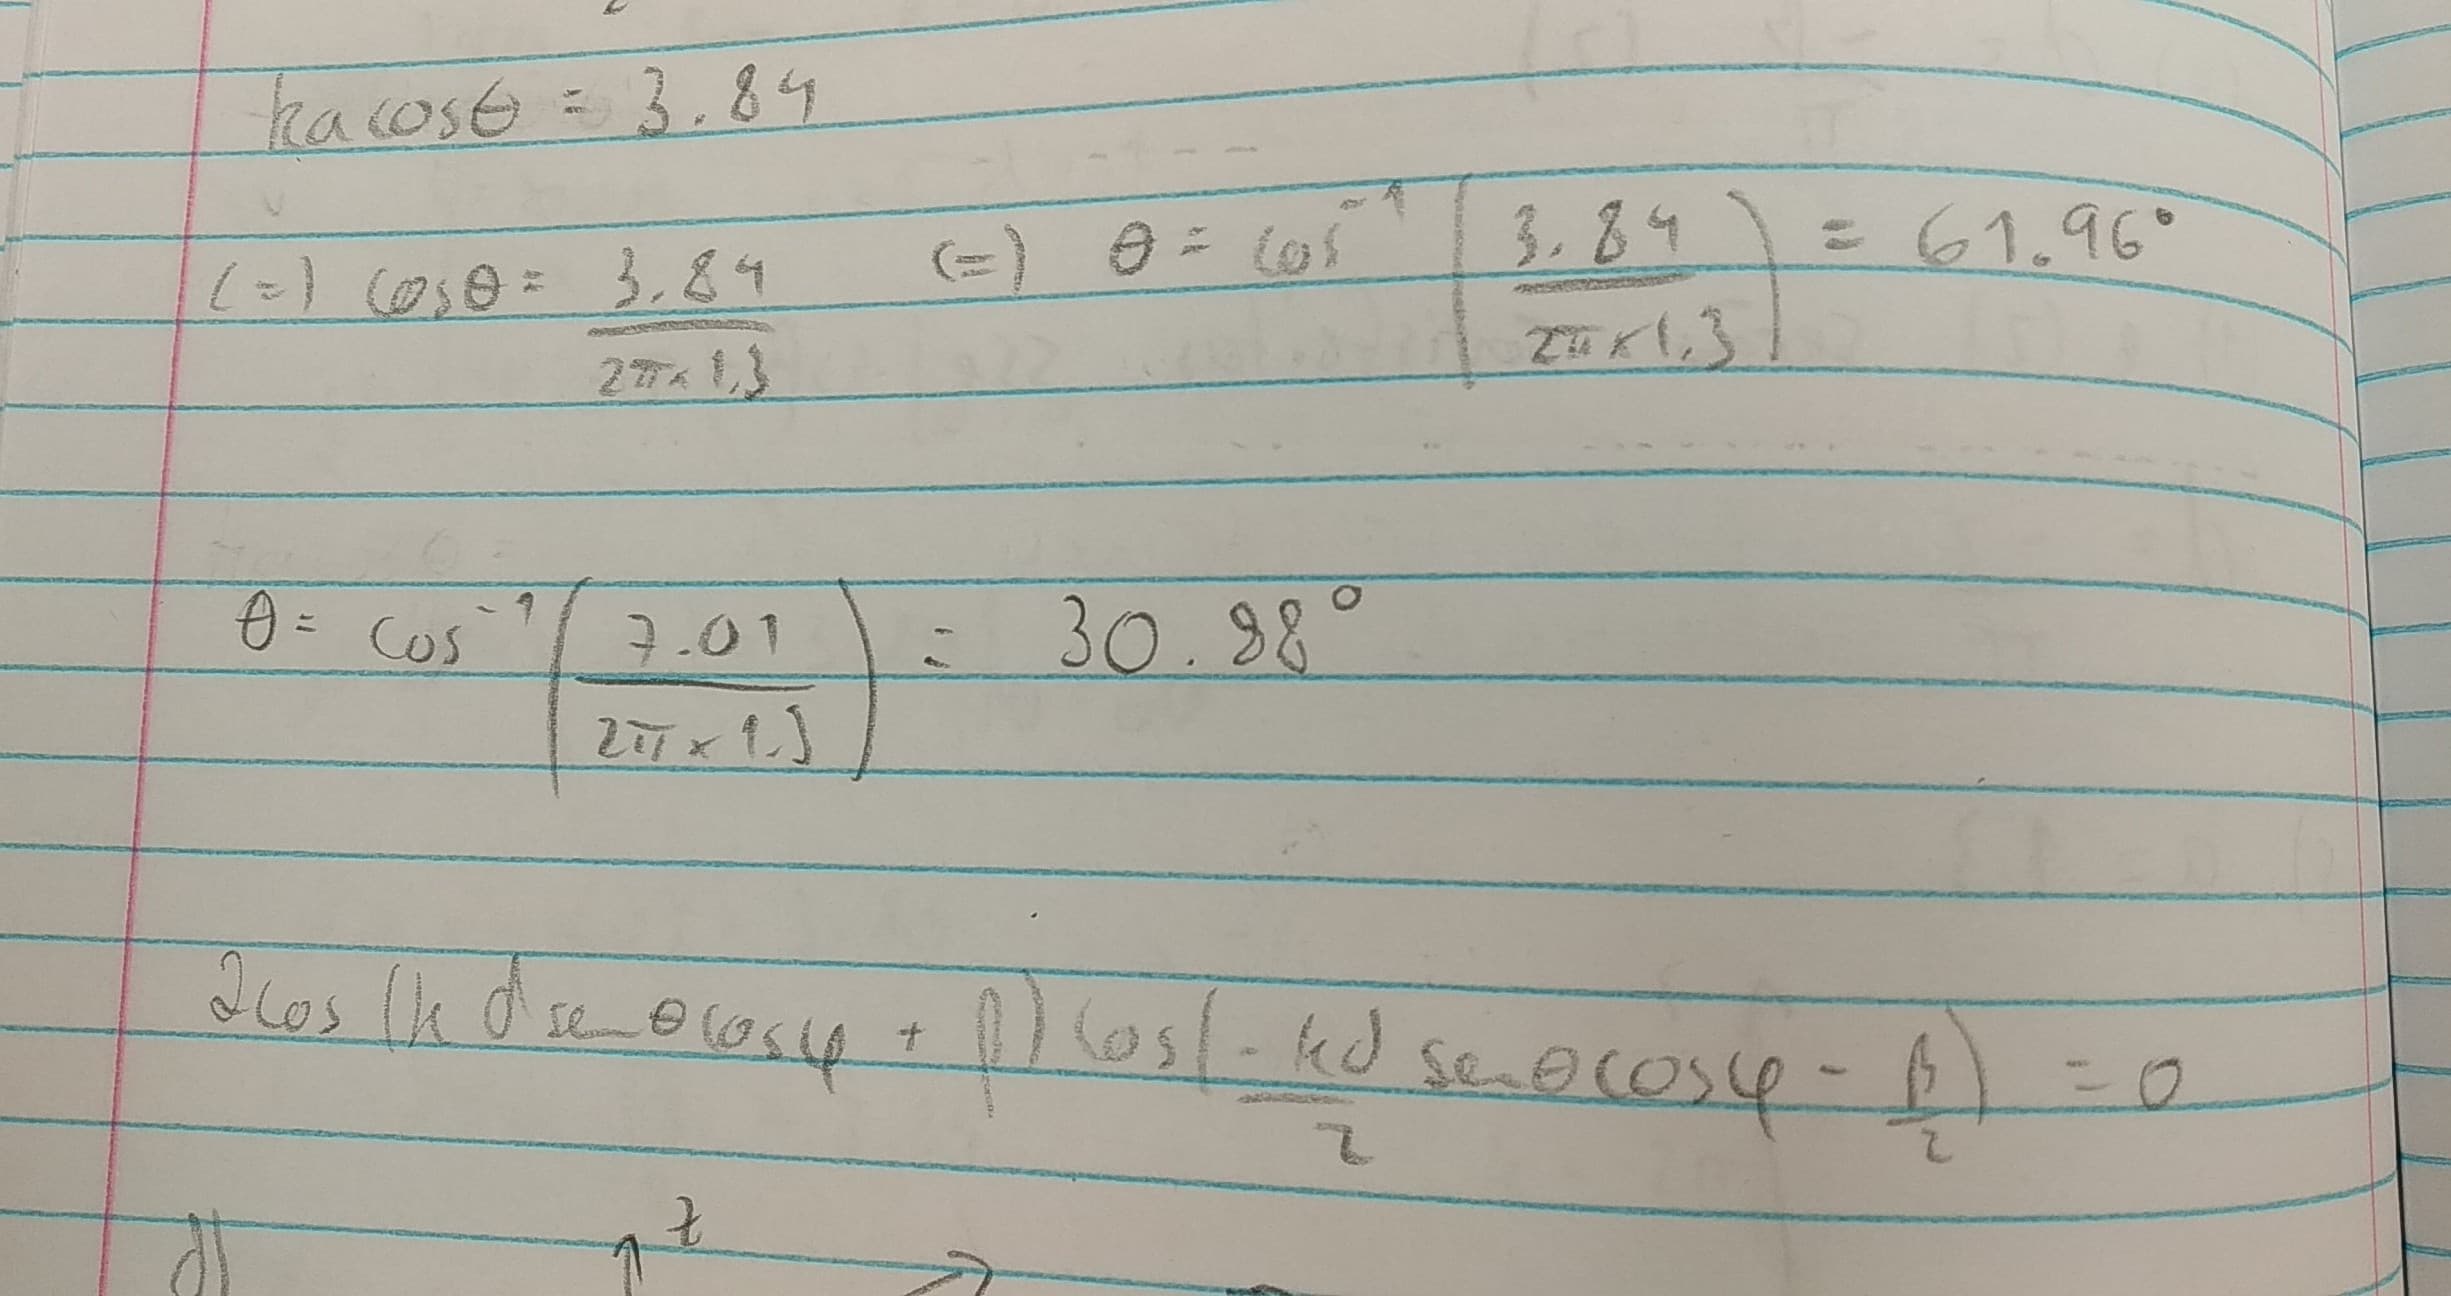 ka cosθ = 3.84
(=) cosθ = 3.84 / 2π×1.3 (=) θ = cos⁻¹ (3.84 / 2π×1.3) = 61.96°
θ = cos⁻¹ (7.01 / 2π×1.3) = 30.88°
2cos (k d senθ cosφ + β) cos(-kd/2 senθ cosφ - β/2) = 0
d)
z